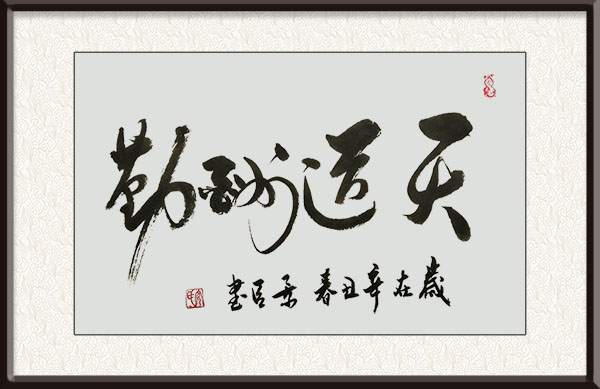 天道酬勤
歲在辛丑春 書